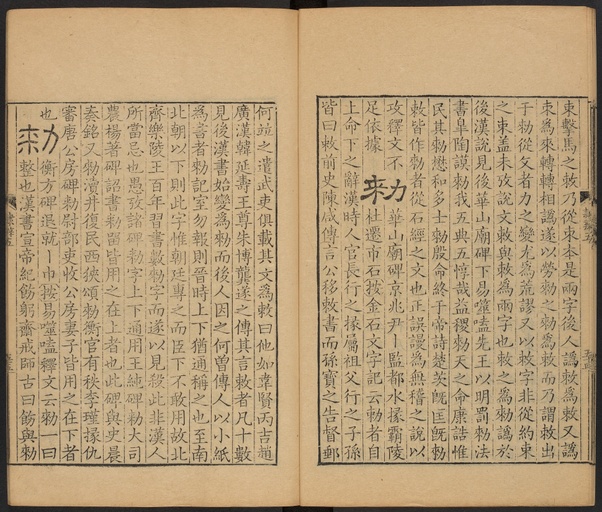 朿擊馬之敇乃從朿本是兩字後人譌敕爲敇又譌
束爲來轉轉相譌遂以勞勑之勑爲敕而乃謂敕出
于勑從攵者力之變尤爲荒謬又以敕字非從約束
之束蓋未攷說文敕與敇爲兩字也敕之爲勑譌於
後漢說見後華山廟碑下易噬嗑先王以明罰勑法
書臯陶謨勑我五典五惇哉益稷勑天之命康誥惟
民其勑懋和多士勑殷命終于帝詩楚茨旣匡旣勑
敕皆作勑者從石經之文也正誤謾爲無稽之說以
攻釋文不
足依據
勑
華山廟碑京兆尹｜監都水掾霸陵
杜遷市石按金石文字記云勑者自
上命下之辭漢時人官長行之掾屬祖父行之子孫
皆曰敕前史陳咸傳言公移敕書而孫寶之告督郵
何並之遣武吏俱載其文爲敕曰他如韋賢丙吉趙
廣漢韓延壽王尊朱博龔遂之傳其言敕者凡十數
見後漢書始變爲勑而後人因之何曾傳人以小紙
爲書者勑記室勿報則晉時上下猶通稱之也至南
北朝以下則此字惟朝廷專之而臣下不敢用故北
齊樂陵王百年習書數勑字而遂以見殺此非漢人
所當忌也愚攷諸碑勑字上下通用王純碑勑大司
農楊著碑詔書勑留皆用之在上者也此碑與史晨
奏銘又勑瀆井復民西狹頌勑衡官有秩李瑾掾仇
審唐公房碑勑尉部吏收公房妻子皆用之在下者
也
勑
衡方碑退就｜巾按易噬嗑釋文云勑一曰
整也漢書宣帝紀飭躬齋戒師古曰飭與勑